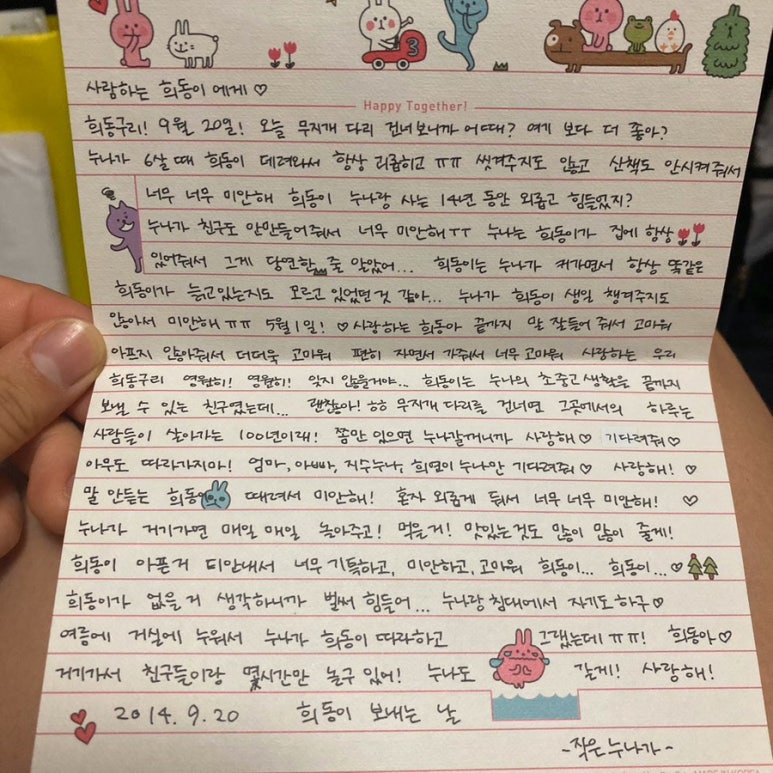 3
사랑하는 희동이에게♡
Happy Together!
희동구리! 9월 20일! 오늘 무지개 다리 건너보니까 어때? 여기 보다 더 좋아?
누나가 6살 때 희동이 데려와서 항상 괴롭히고 ㅠㅠ 씻겨주지도 않고 산책도 안시켜줘서
너무 너무 미안해 희동이 누나랑 사는 14년 동안 외롭고 힘들었지?
누나가 친구도 안만들어줘서 너무 미안해ㅜㅜ 누나는 희동이가 집에 항상
있어줘서 그게 당연한 줄 알았어... 희동이는 누나가 커가면서 항상 똑같은
희동이가 늙고있는지도 모르고 있었던 것 같아... 누나가 희동이 생일 챙겨주지도
않아서 미안해 ㅠㅠ 5월 1일! ♡사랑하는 희동아 끝까지 말 잘들어 줘서 고마워
아프지 않아줘서 더더욱 고마워 편히 자면서 가줘서 너무 고마워 사랑하는 우리
희동구리 영원히! 영원히! 잊지 않을거야... 희동이는 누나의 초중고 생활을 끝까지
보낼 수 있는 친구였는데... 괜찮아! ㅎㅎ 무지개 다리를 건너면 그곳에서의 하루는
사람들이 살아가는 100년이래! 쫌만 있으면 누나갈거니까 사랑해♡ 기다려줘♡
아무도 따라가지마! 엄마, 아빠, 지수누나, 희연이누나만 기다려줘♡ 사랑해! ♡
말 안듣는 희동이 때려서 미안해! 혼자 외롭게 둬서 너무 너무 미안해! ♡
누나가 거기가면 매일 매일 놀아주고! 먹을거! 맛있는것도 많이 많이 줄게!
희동이 아픈거 티안내서 너무 기특하고, 미안하고, 고마워 희동이... 희동이...♡
희동이가 없을 거 생각하니까 벌써 힘들어... 누나랑 침대에서 자기도 하구♡
여름에 거실에 누워서 누나가 희동이 따라하고 그랬는데 ㅠㅠ! 희동아♡
거기가서 친구들이랑 몇시간만 놀구 있어! 누나도 갈게! 사랑해!
2014.9.20 희동이 보내는 날
-작은누나가-